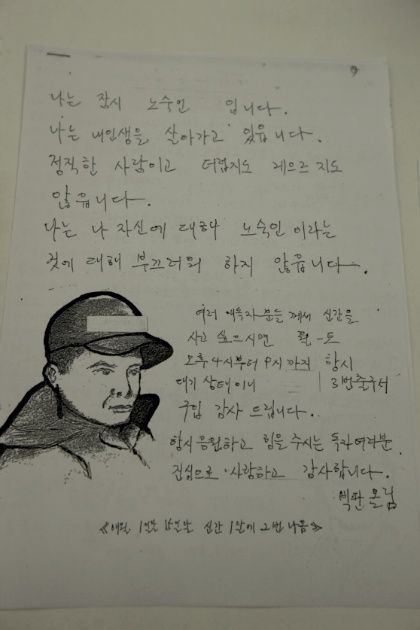 나는 잠시 노숙인 입니다.
나는 내인생을 살아가고 있읍니다.
정직한 사람이고 더럽지도 게으르지도
않읍니다.
나는 나 자신에 대해 노숙인 이라는
것에 대해 부끄러워 하지 않읍니다.
여러 애독자분들 께서 신간을
사고 싶으시면 월-토
오후 4시부터 9시 까지 항시
대기 상태이니 3번출구서
구입 감사 드립니다.
항시 응원하고 힘을 주시는 독자여러분
진심으로 사랑하고 감사합니다.
빅판 올림
《매월 1일 15일 신간 1달에 2번 나옴》